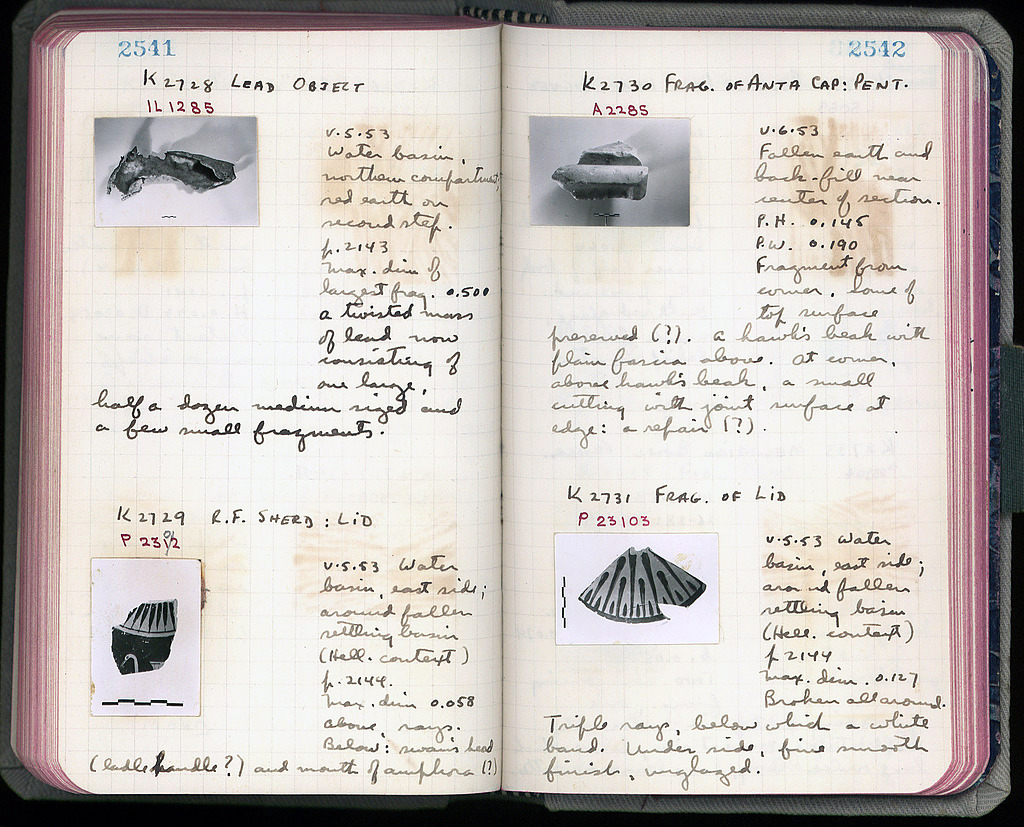 2541
K 2728 LEAD OBJECT
IL 1285
V.5.53
Water basin,
northern compartment,
red earth on
second step.
p. 2143
Max. dim of
largest frag. 0.500
a twisted mass
of lead now
consisting of
one large,
half a dozen medium sized and
a few small fragments.
K 2729 R.F. SHERD : LID
P 23
V.5.53 Water
basin, east side;
around fallen
settling basin
(Hell. context)
p. 2144.
Max. dim 0.058
above, rays.
Below: swan's head
(ladle handle?) and mouth of amphora (?)
2542
K 2730 FRAG. OF ANTA CAP: PENT.
A 2285
V.6.53
Fallen earth and
back-fill near
center of section.
P.H. 0.145
P.W. 0.190
Fragment from
corner. Some of
top surface
preserved (?). a hawk's beak with
plain fascia above. at corner,
above hawk's beak, a small
cutting with joint surface at
edge: a repair (?).
K 2731 FRAG. OF LID
P 23103
V.5.53 Water
basin, east side;
around fallen
settling basin
(Hell. context)
p 2144
Max. dim. 0.127
Broken all around.
Triple rays, below which a white
band. Under side, fine smooth
finish, unglazed.